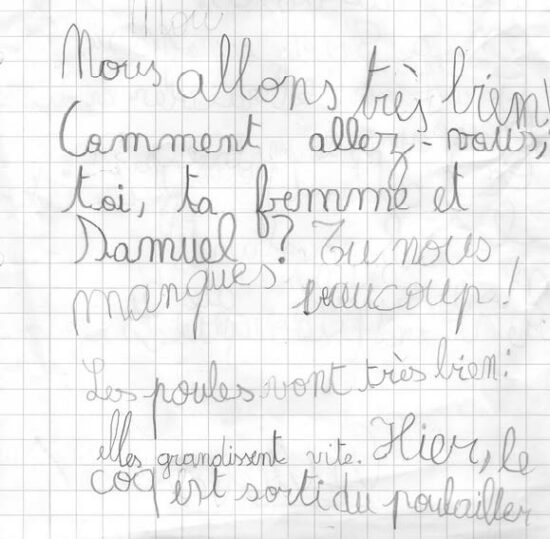 Mou
Nous allons très bien!
Comment allez-vous,
toi, ta femme et
Samuel ? Tu nous
manques beaucoup !
Les poules vont très bien:
elles grandissent vite. Hier, le
coq est sorti du poulailler